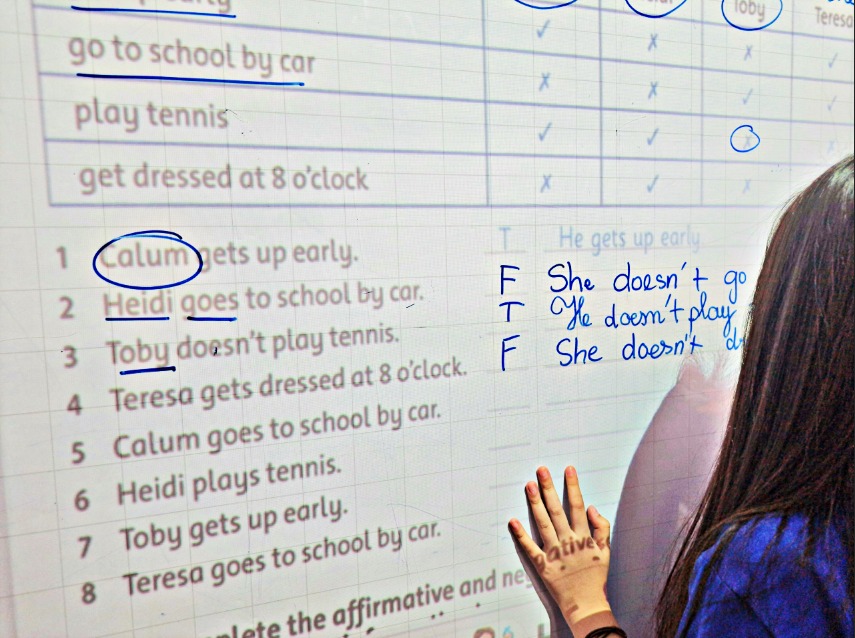 Toby
Teresa
go to school by car
play tennis
get dressed at 8 o'clock
1 Calum gets up early. T He gets up early
2 Heidi goes to school by car. F She doesn't go
3 Toby doesn't play tennis. T He doesn't play
4 Teresa gets dressed at 8 o'clock. F She doesn't
5 Calum goes to school by car.
6 Heidi plays tennis.
7 Toby gets up early.
8 Teresa goes to school by car.
the affirmative and